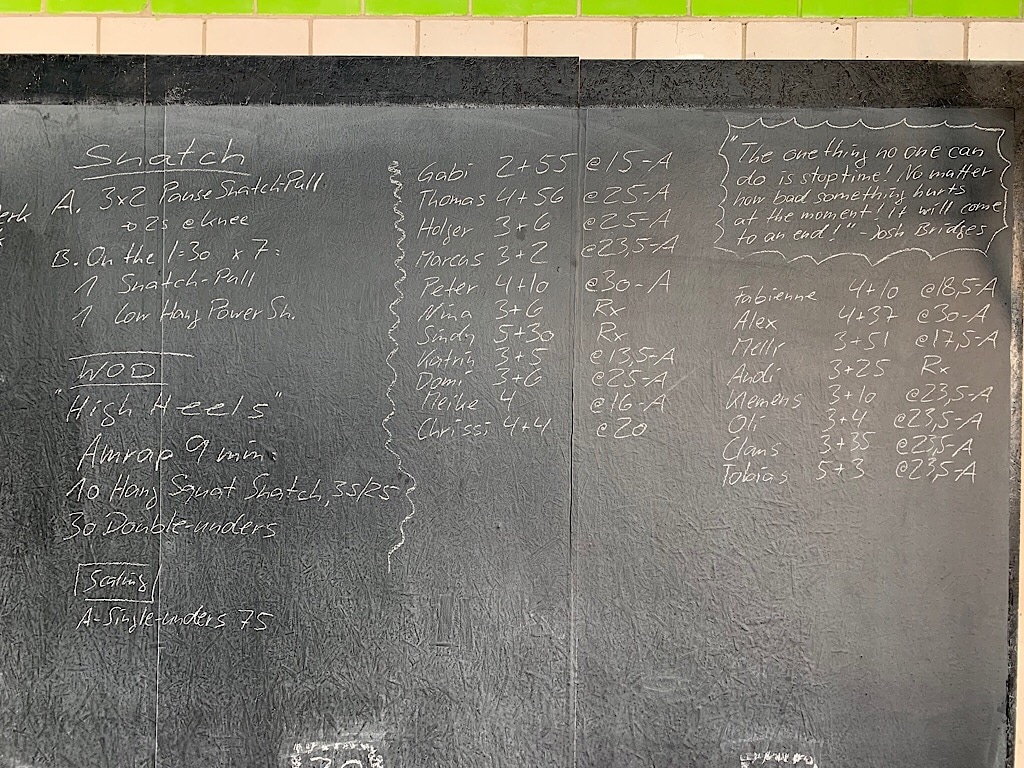 Snatch
A. 3x2 Pause Snatch Pull
→ 2s @ knee
B. On the 1:30 x 7:
1 Snatch-Pull
1 Low Hang Power Sn.
WOD
"High Heels"
Amrap 9 min:
10 Hang Squat Snatch, 35/25
30 Double-unders
Scaling
A- Single-unders 75
Gabi 2+55 @15-A
Thomas 4+56 @25-A
Holger 3+6 @25-A
Marcus 3+2 @23,5-A
Peter 4+10 @30-A
Nina 3+6 Rx
Sindy 5+30 Rx
Katrin 3+5 @13,5-A
Domi 3+6 @25-A
Meike 4 @16-A
Chrissi 4+4 @20
"The one thing no one can
do is stop time! No matter
how bad something hurts
at the moment! it will come
to an end!" - Josh Bridges
Fabienne 4+10 @18,5-A
Alex 4+37 @30-A
Melli 3+51 @17,5-A
Andi 3+25 Rx
Klemens 3+10 @23,5-A
Oli 3+4 @23,5-A
Claus 3+35 @23,5-A
Tobias 5+3 @23,5-A